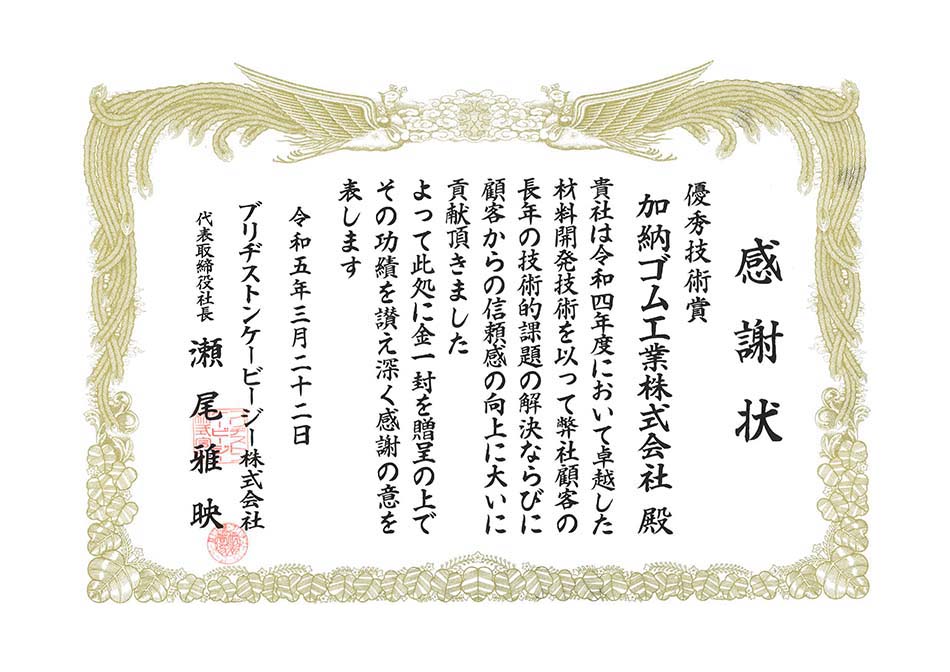 感謝状
優秀技術賞
加納ゴム工業株式会社 殿
貴社は令和四年度において卓越した
材料開発技術を以って弊社顧客の
長年の技術的課題の解決ならびに
顧客からの信頼感の向上に大いに
貢献頂きました
よって此処に金一封を贈呈の上で
その功績を讃え深く感謝の意を
表します
令和五年三月二十二日
ブリヂストンケービージー株式会社
代表取締役社長 瀬尾雅映